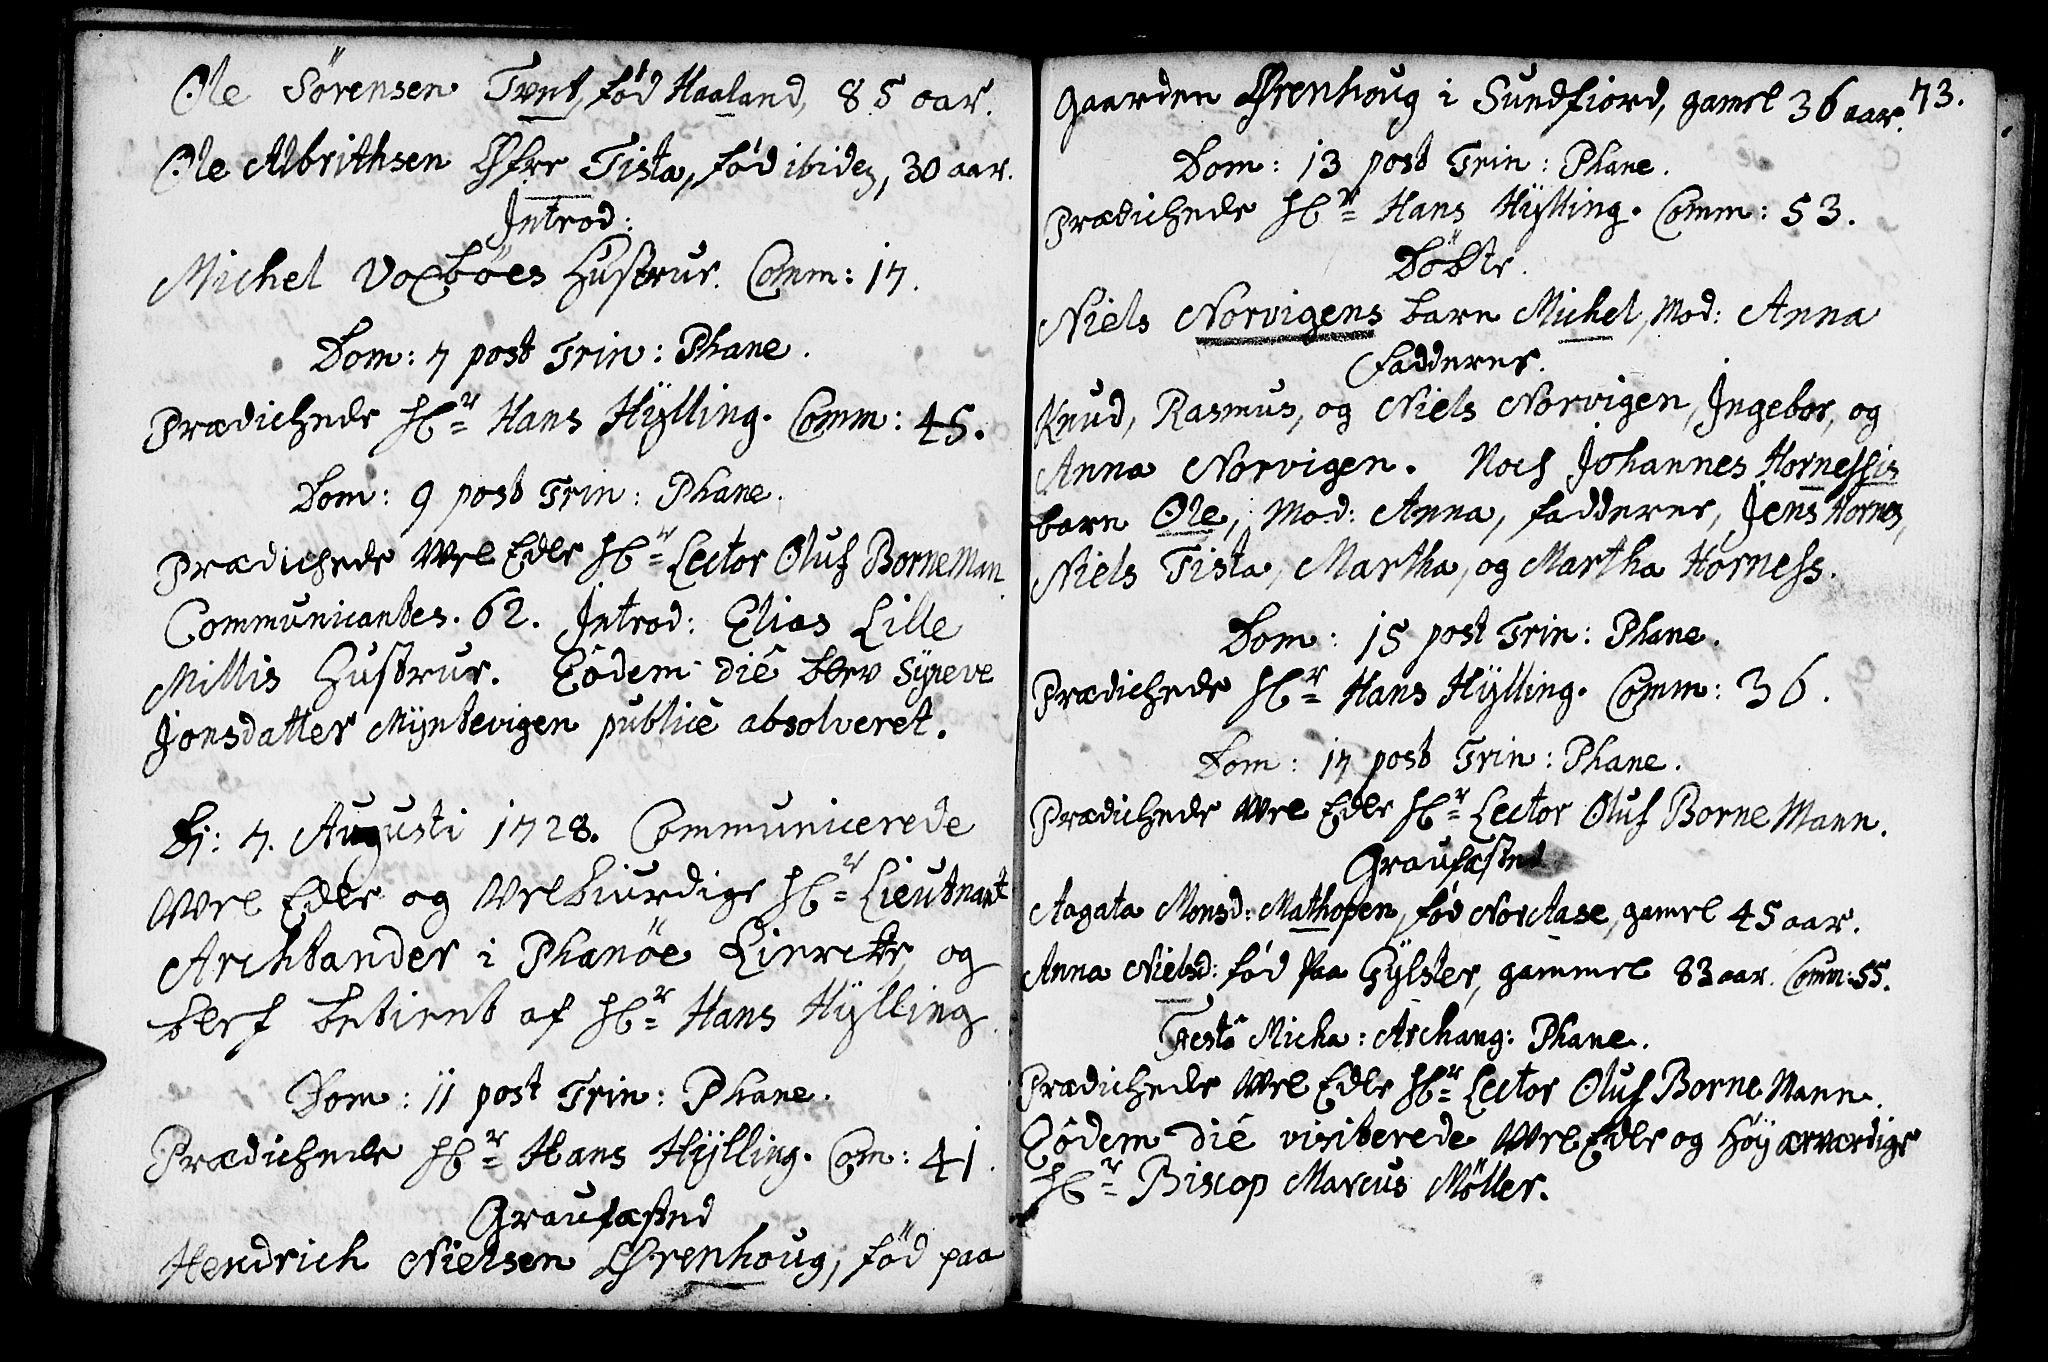 Ole Sörensen Tvnt, fød Haaland, 85 aar.
Ole Albrithsen Øfre Tista, fød ibidem, 30 aar.
Introd:
Michel Voxböes Hustrue. Comm: 17.
Dom: 7 post Trin: Phane.
Prædichede Hr Hans Hÿlling. Comm: 45.
Dom: 9 post Trin: Phane.
Prædichede Wel Edle Hr Lector Oluf BorneMan
Communicantes. 62. Introd: Elias Lille
Millis Hustrue. Eôdem die blev Sÿneve
Jonsdatter Mÿntevigen publice absolveret.
D: 7. Augusti 1728. Communicerede
Wel Edle og Welbiurdige Hr Lieutnant
Archtander i Phanöe Kircke, og
blef betient af Hr Hans Hÿlling.
Dom: 11 post Trin: Phane.
Prædichede Hr Hans Hÿlling. Com: 41.
Graufæsted
Hendrich Nielsen Ørenhoug, fød paa
73.
Gaarden Ørenhoug i Sundfiord, gamel 36 aar.
Dom: 13 post Trin: Phane.
Prædichede Hr Hans Hÿlling. Comm: 53.
Döbte.
Niels Norvigens barn Michel, Mod: Anna
Fadderer.
Knud, Rasmus, og Niels Norvigen, Ingebor, og
Anna Norvigen. Noch Johannes Hornessis
barn Ole, Mod: Anna, fadderer, Jens Hornes,
Niels Tista, Martha, og Martha Horness.
Dom: 15 post Trin: Phane.
Prædichede Hr Hans Hÿlling. Comm: 36.
Dom: 17 post Trin: Phane.
Prædichede Wel Edle Hr Lector Oluf Borne Mann.
Graufæsted
Aagata Monsd: Mathopen, fød NorAase, gamel 45 aar.
Anna Nielsd: fød paa Gÿlster, gammel 83 aar. Comm: 55.
Festô Micha: Archang: Phane.
Prædichede Wel Edle Hr Lector Oluf Borne Mann.
Eôdem die visiterede Wel Edle og Höÿ ærværdige
Hr Biscop Marcus Möller.